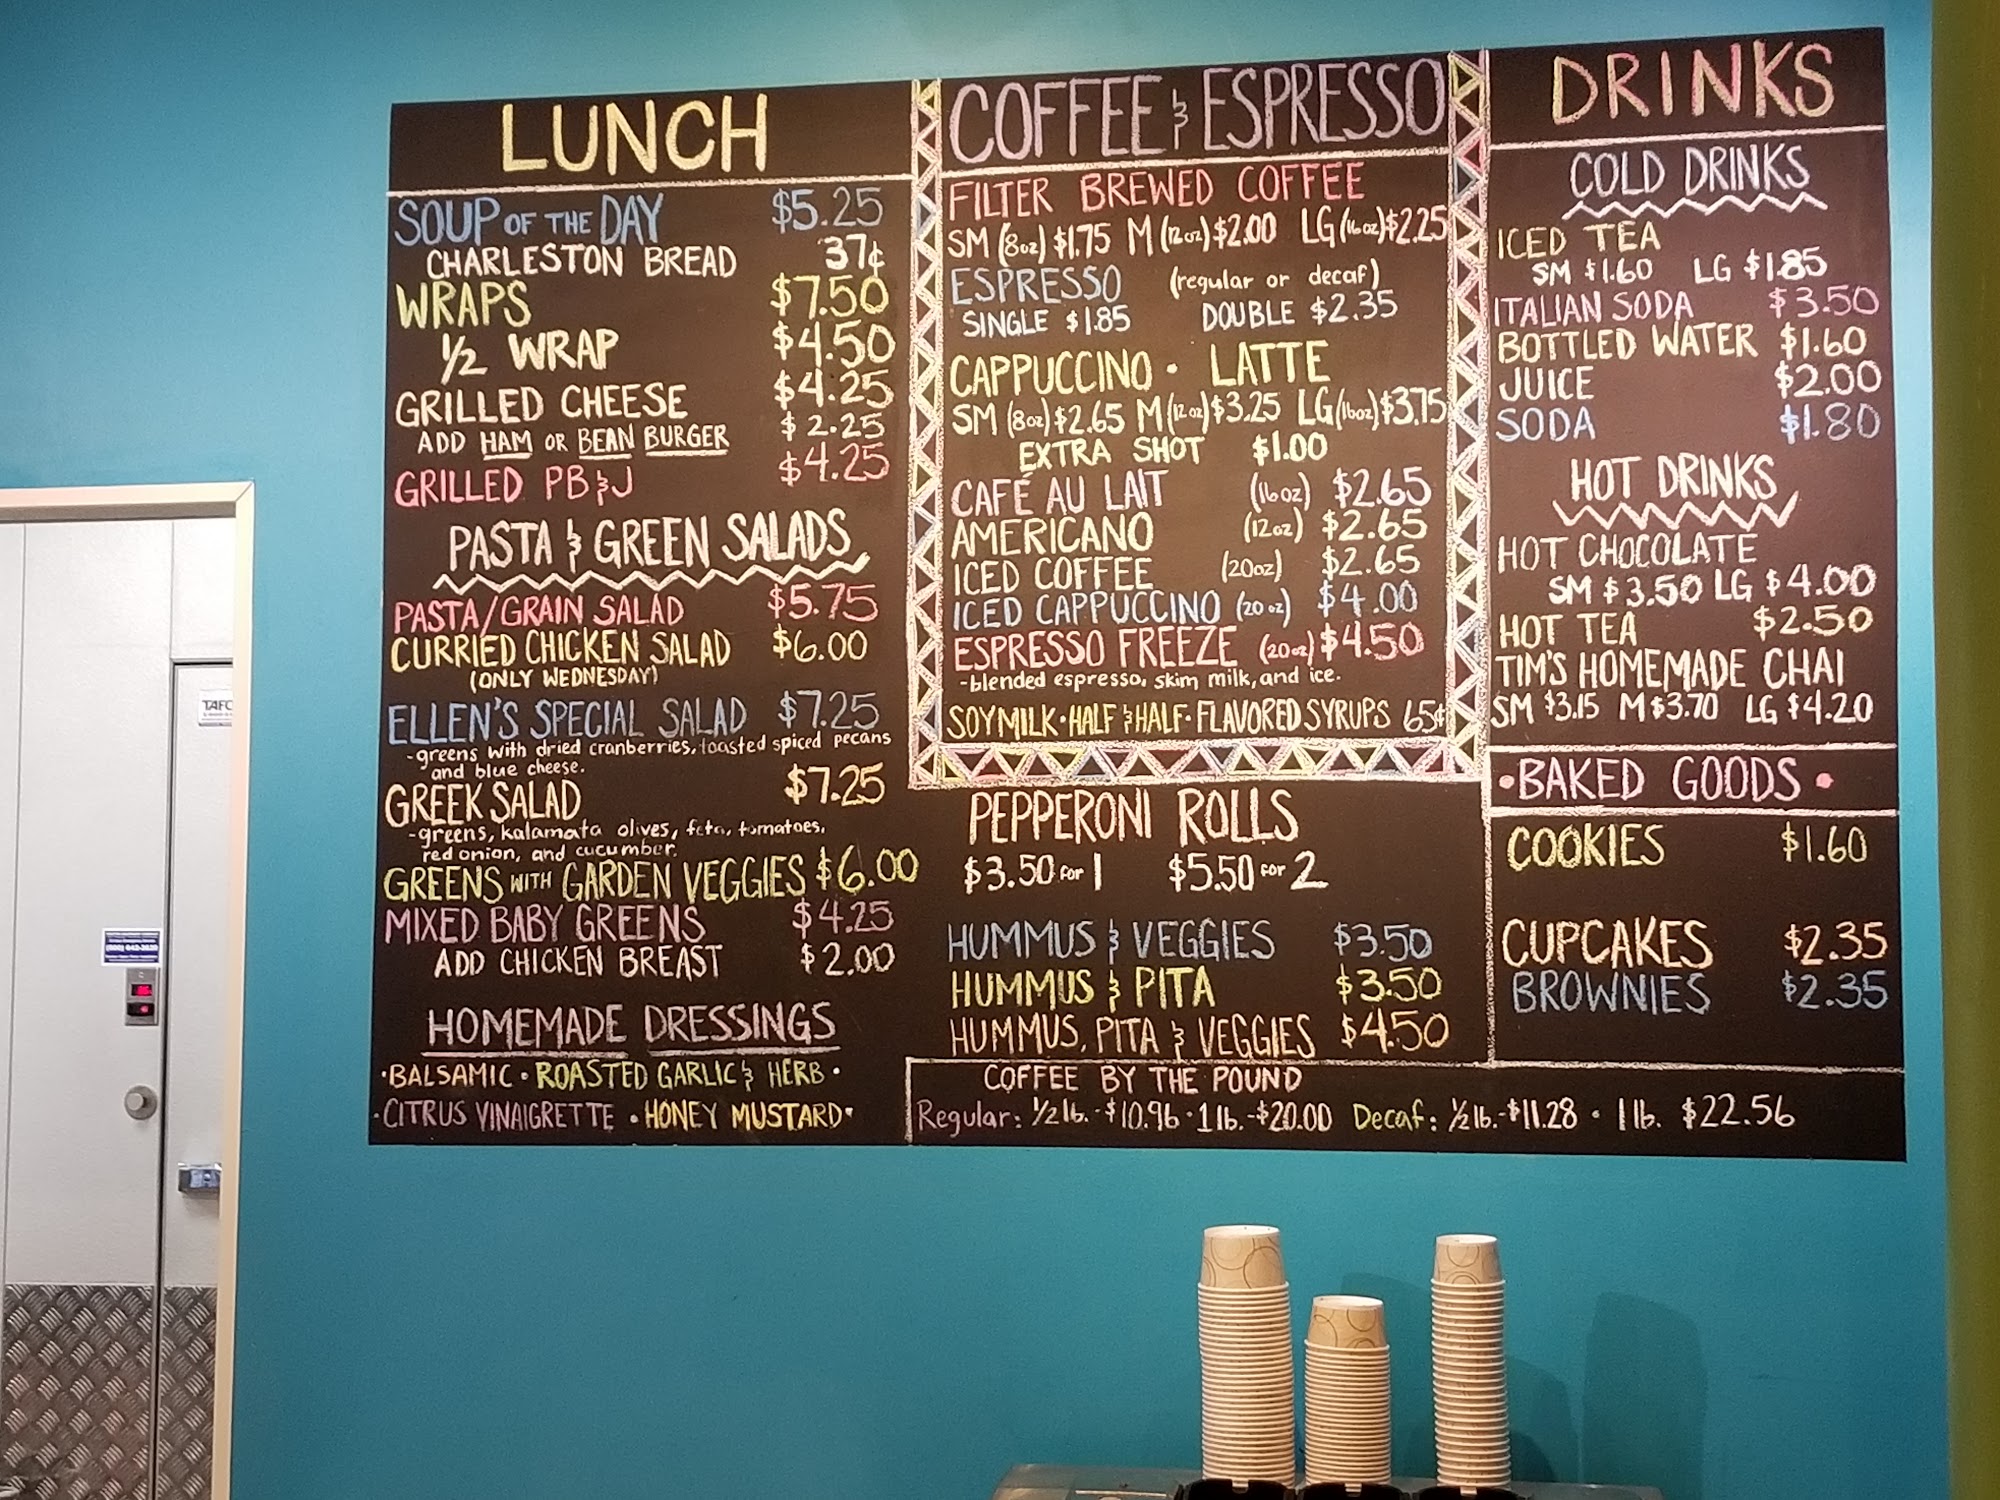 LUNCH
SOUP OF THE DAY $5.25
CHARLESTON BREAD 37¢
WRAPS $7.50
1/2 WRAP $4.50
GRILLED CHEESE $4.25
ADD HAM OR BEAN BURGER $2.25
GRILLED PB&J $4.25
PASTA & GREEN SALADS
PASTA/GRAIN SALAD $5.75
CURRIED CHICKEN SALAD $6.00
(ONLY WEDNESDAY)
ELLEN'S SPECIAL SALAD $7.25
-greens with dried cranberries, toasted spiced pecans
and blue cheese.
GREEK SALAD $7.25
-greens, kalamata olives, feta, tomatoes,
red onion, and cucumber.
GREENS WITH GARDEN VEGGIES $6.00
MIXED BABY GREENS $4.25
ADD CHICKEN BREAST $2.00
HOMEMADE DRESSINGS
•BALSAMIC • ROASTED GARLIC & HERB •
•CITRUS VINAIGRETTE • HONEY MUSTARD•
COFFEE & ESPRESSO
FILTER BREWED COFFEE
SM (8oz) $1.75 M (12oz) $2.00 LG (16oz) $2.25
ESPRESSO (regular or decaf)
SINGLE $1.85 DOUBLE $2.35
CAPPUCCINO • LATTE
SM (8oz) $2.65 M (12oz) $3.25 LG (16oz) $3.75
EXTRA SHOT $1.00
CAFÉ AU LAIT (16oz) $2.65
AMERICANO (12oz) $2.65
ICED COFFEE (20oz) $2.65
ICED CAPPUCCINO (20oz) $4.00
ESPRESSO FREEZE (20oz) $4.50
-blended espresso, skim milk, and ice.
SOYMILK • HALF & HALF • FLAVORED SYRUPS 65¢
PEPPERONI ROLLS
$3.50 for 1 $5.50 for 2
HUMMUS & VEGGIES $3.50
HUMMUS & PITA $3.50
HUMMUS, PITA & VEGGIES $4.50
DRINKS
COLD DRINKS
ICED TEA
SM $1.60 LG $1.85
ITALIAN SODA $3.50
BOTTLED WATER $1.60
JUICE $2.00
SODA $1.80
HOT DRINKS
HOT CHOCOLATE
SM $3.50 LG $4.00
HOT TEA $2.50
TIM'S HOMEMADE CHAI
SM $3.15 M $3.70 LG $4.20
• BAKED GOODS •
COOKIES $1.60
CUPCAKES $2.35
BROWNIES $2.35
COFFEE BY THE POUND
Regular: 1/2 lb. - $10.96 • 1 lb. - $20.00 Decaf: 1/2 lb. - $11.28 • 1 lb. $22.56